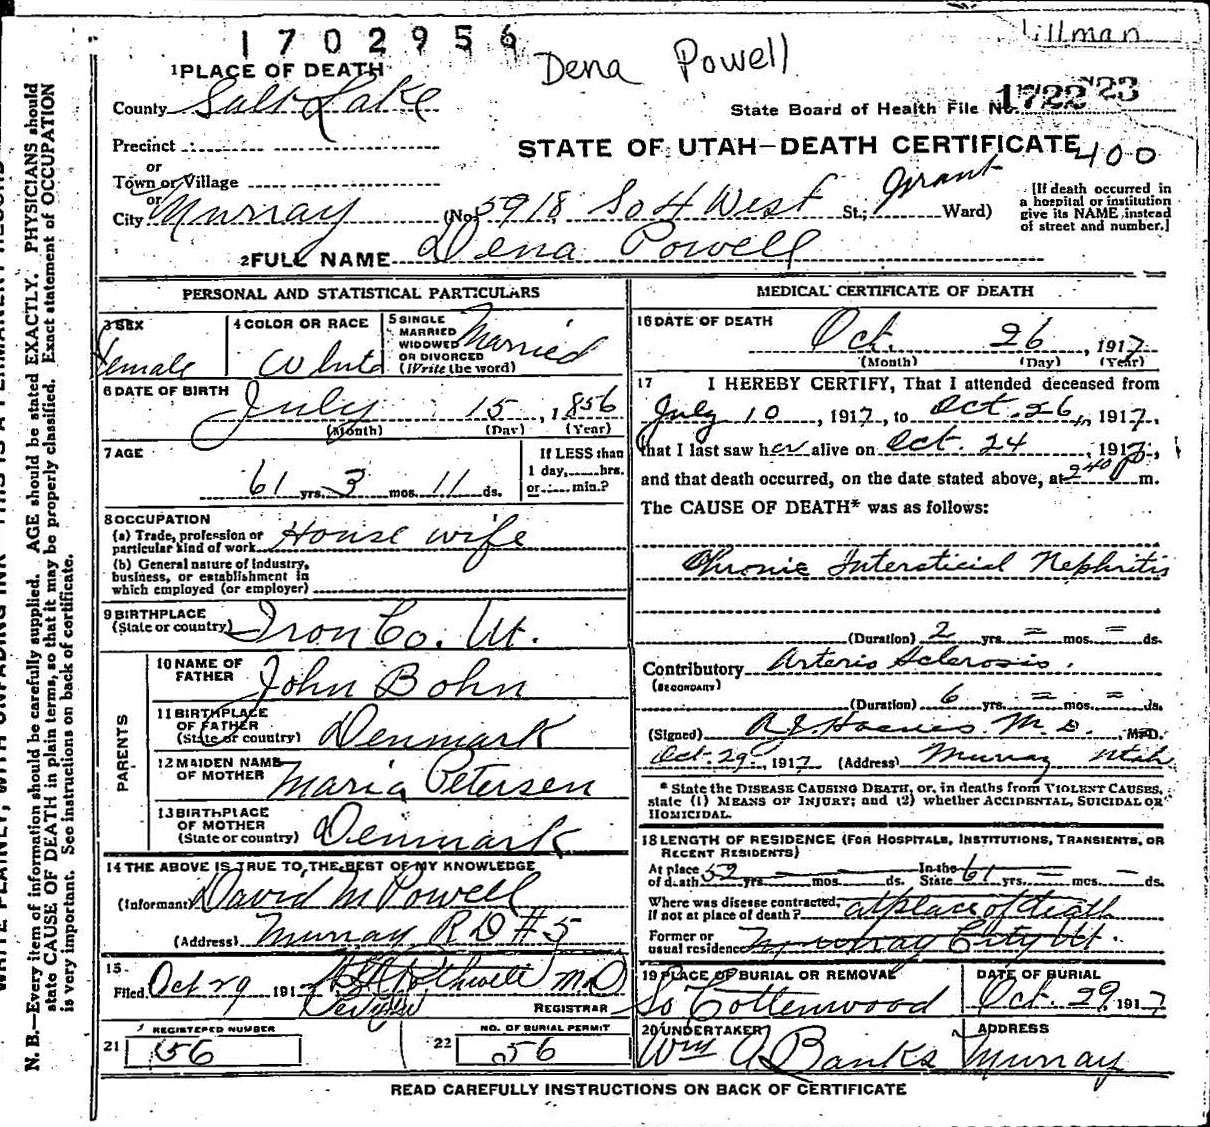 1702956
Dena Powell
1 PLACE OF DEATH
County Salt Lake
State Board of Health File No. 1722 23
Precinct
STATE OF UTAH—DEATH CERTIFICATE 400
or
Town or Village
or
City Murray (No. 5918 So 4 West St.; Grant Ward)
[If death occurred in a hospital or institution give its NAME instead of street and number.]
2 FULL NAME Dena Powell
PERSONAL AND STATISTICAL PARTICULARS
3 SEX
Female
4 COLOR OR RACE
White
5 SINGLE
MARRIED
WIDOWED
OR DIVORCED
(Write the word)
Married
6 DATE OF BIRTH
July 15, 1856
(Month) (Day) (Year)
7 AGE
61 yrs. 3 mos. 11 ds.
If LESS than
1 day, hrs.
or min.?
8 OCCUPATION
(a) Trade, profession or
particular kind of work House wife
(b) General nature of industry,
business, or establishment in
which employed (or employer)
9 BIRTHPLACE
(State or country) Iron Co. Ut.
PARENTS
10 NAME OF
FATHER John Bohn
11 BIRTHPLACE
OF FATHER
(State or country) Denmark
12 MAIDEN NAME
OF MOTHER Maria Petersen
13 BIRTHPLACE
OF MOTHER
(State or country) Denmark
14 THE ABOVE IS TRUE TO THE BEST OF MY KNOWLEDGE
(Informant) David M Powell
(Address) Murray R D #5
15
Filed Oct 29 191 M.D
REGISTRAR
REGISTERED NUMBER
21 156
NO. OF BURIAL PERMIT
22 56
MEDICAL CERTIFICATE OF DEATH
16 DATE OF DEATH
Oct. 26, 1917
(Month) (Day) (Year)
17 I HEREBY CERTIFY, That I attended deceased from
July 10, 1917, to Oct. 26, 1917,
that I last saw her alive on Oct. 24, 1917,
and that death occurred, on the date stated above, at 2 40 P m.
The CAUSE OF DEATH* was as follows:
Chronic Intersticial Nephritis
(Duration) 2 yrs. = mos. = ds.
Contributory Arterio Sclerosis.
(SECONDARY)
(Duration) 6 yrs. = mos. = ds.
(Signed) M. D., M.D.
Oct. 29, 1917 (Address) Murray Utah
* State the DISEASE CAUSING DEATH, or, in deaths from VIOLENT CAUSES,
state (1) MEANS OF INJURY; and (2) whether ACCIDENTAL, SUICIDAL OR
HOMICIDAL.
18 LENGTH OF RESIDENCE (FOR HOSPITALS, INSTITUTIONS, TRANSIENTS, OR
RECENT RESIDENTS)
At place
of death 52 yrs. mos. ds. In the State 61 yrs. — mos. — ds.
Where was disease contracted,
if not at place of death? at place of death
Former or
usual residence Murray City Ut.
19 PLACE OF BURIAL OR REMOVAL
So Cottenwood
DATE OF BURIAL
Oct. 29 1917
20 UNDERTAKER
Wm A Banks
ADDRESS
Murray
READ CAREFULLY INSTRUCTIONS ON BACK OF CERTIFICATE
N. B.—Every item of information should be carefully supplied. AGE should be stated EXACTLY. PHYSICIANS should
state CAUSE OF DEATH in plain terms, so that it may be properly classified. Exact statement of OCCUPATION
is very important. See instructions on back of certificate.